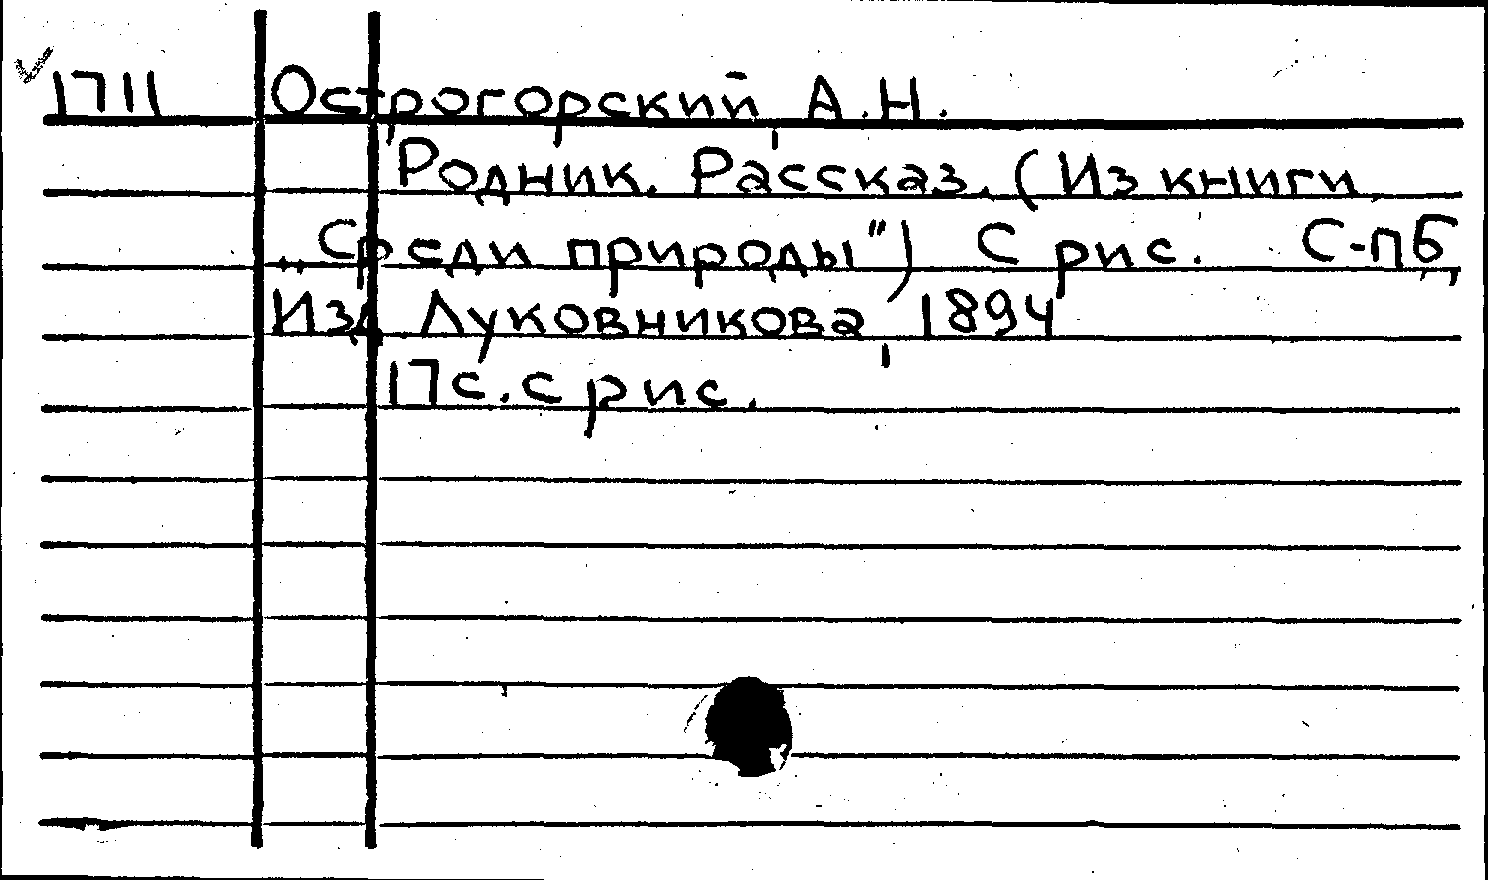 1711 Острогорский А.Н.
Родник. Рассказ. (Из книги
„Среди природы") С рис. С-пб,
Изд Луковникова, 1894
17с. с рис.